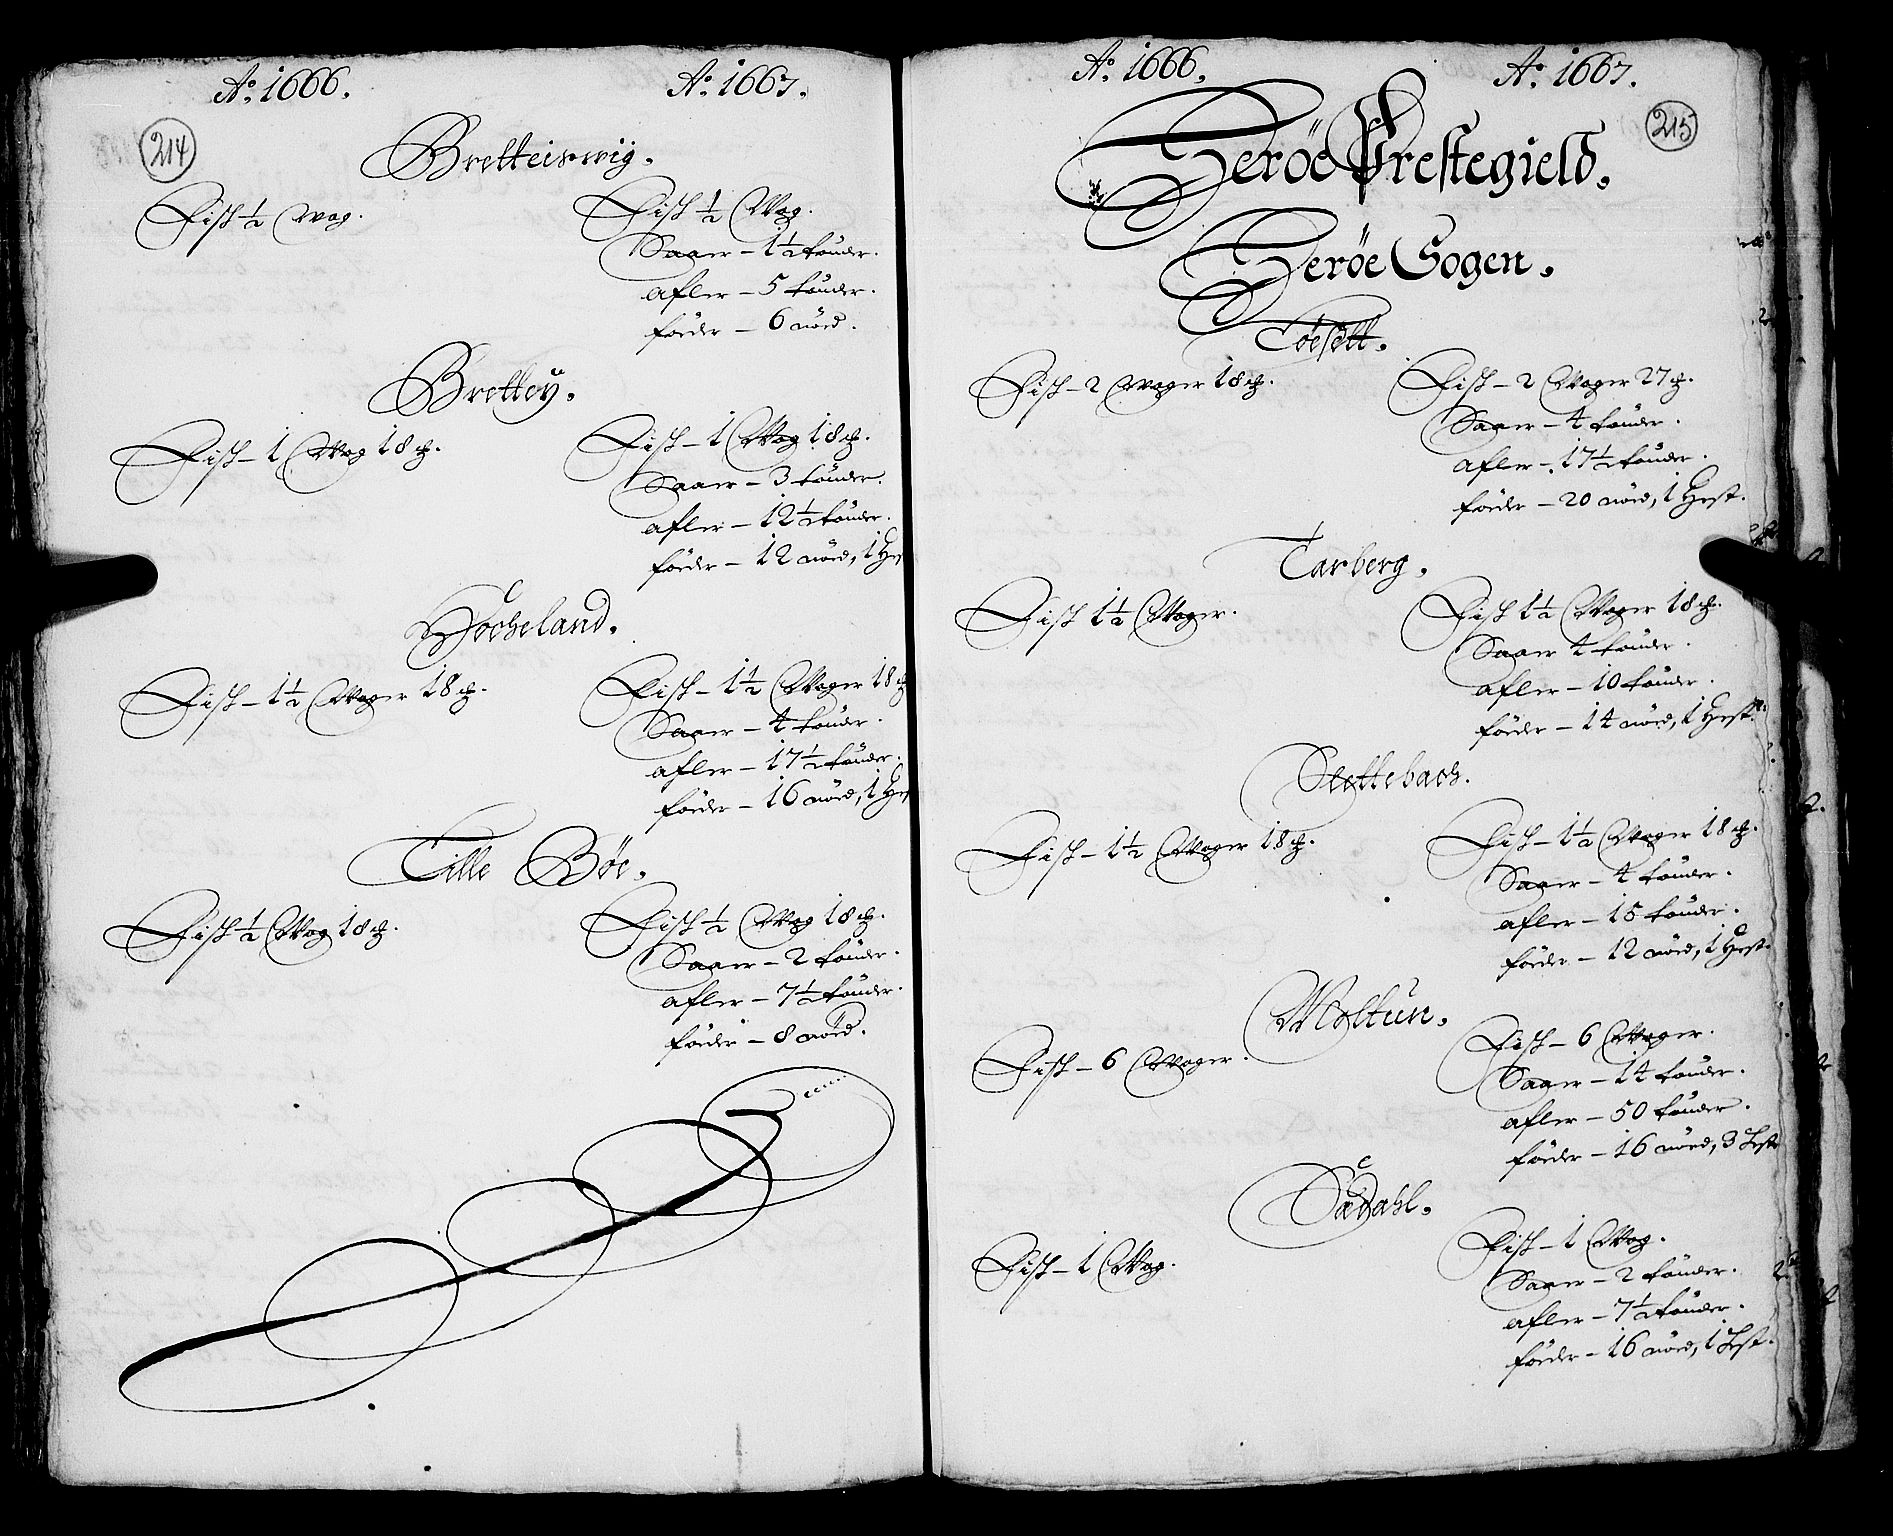 Aº. 1666. Aº. 1667.
214
Bretteiswig.
Fisk ½ wog.
Fisk ½ Wog.
Saaer – 1½ tønder.
afler – 5 tønder.
føder – 6 nöed.
Brettey.
Fisk – 1 Wog 18 ℔.
Fisk – 1 Wog 18 ℔.
Saaer – 3 tønder.
afler – 12½ tønder.
føder – 12 nöed, 1 Hes
Hocheland.
Fisk – 1½ Woger 18 ℔.
Fisk – 1½ Woger 18 ℔
Saaer – 4 tønder.
afler – 17½ tønder.
føder – 16 nöed, 1 Hes
Tille Böe.
Fisk ½ Wog 18 ℔.
Fisk ½ Wog 18 ℔.
Saaer – 2 tønder.
afler – 7½ tønder.
føder – 8 nöed.
Aº. 1666. Aº. 1667.
215
Heröe Prestegield.
Heröe Sogen.
Töesett.
Fisk – 2 woger 18 ℔.
Fisk – 2 Woger 27 ℔.
Saaer – 4 tønder.
afler – 17½ tønder.
føder – 20 nöed, 1 Hest.
Tarberg.
Fisk 1½ Woger.
Fisk 1½ Woger 18 ℔.
Saaer 4 tønder.
afler – 10 tønder.
føder – 14 nöed, 1 Hest.
Slettebach.
Fisk – 1½ Woger 18 ℔.
Fisk – 1½ Woger 18 ℔.
Saaer – 4 tønder.
afler – 15 tønder.
føder – 12 nöed, 1 Hest.
Moltun.
Fisk – 6 Woger.
Fisk – 6 Woger.
Saaer – 14 tønder.
afler – 50 tønder.
føder – 16 nöed, 3 Hest
Sædahl.
Fisk – 1 Wog.
Fisk – 1 Wog.
Saaer – 2 tønder.
afler – 7½ tønder.
føder – 16 nöed, 1 Hest.